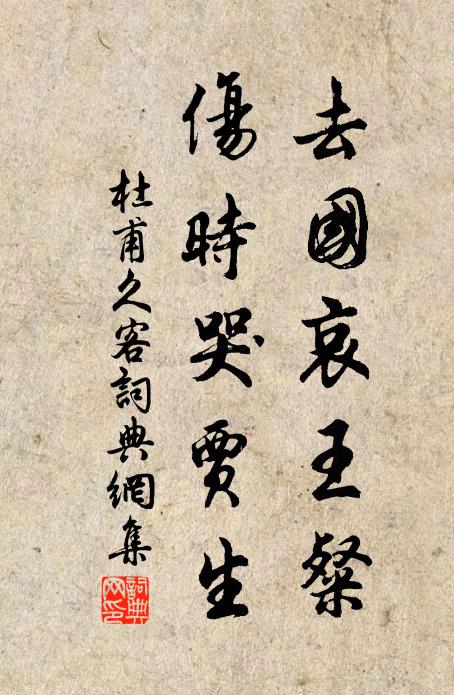 去國哀王粲
傷時哭賈生
杜甫久客詞典網集
詞典網印